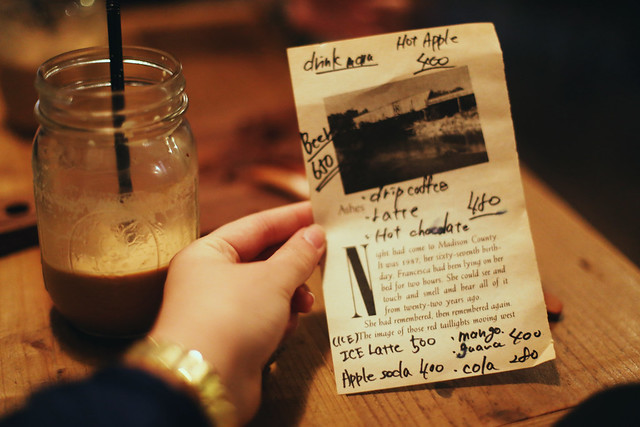 drink menu
Hot Apple
400
Beer
600
• drip coffee
Ashes
• Latte 480
• Hot chocolate
Night had come to Madison County.
It was 1987, her sixty-seventh birth-
day. Francesca had been lying on her
bed for two hours. She could see and
touch and smell and hear all of it
from twenty-two years ago.
She had remembered, then remembered again.
The image of those red taillights moving west
(ICE)
ICE Latte 500
• mango
• guava 400
Apple soda 400
• cola 280